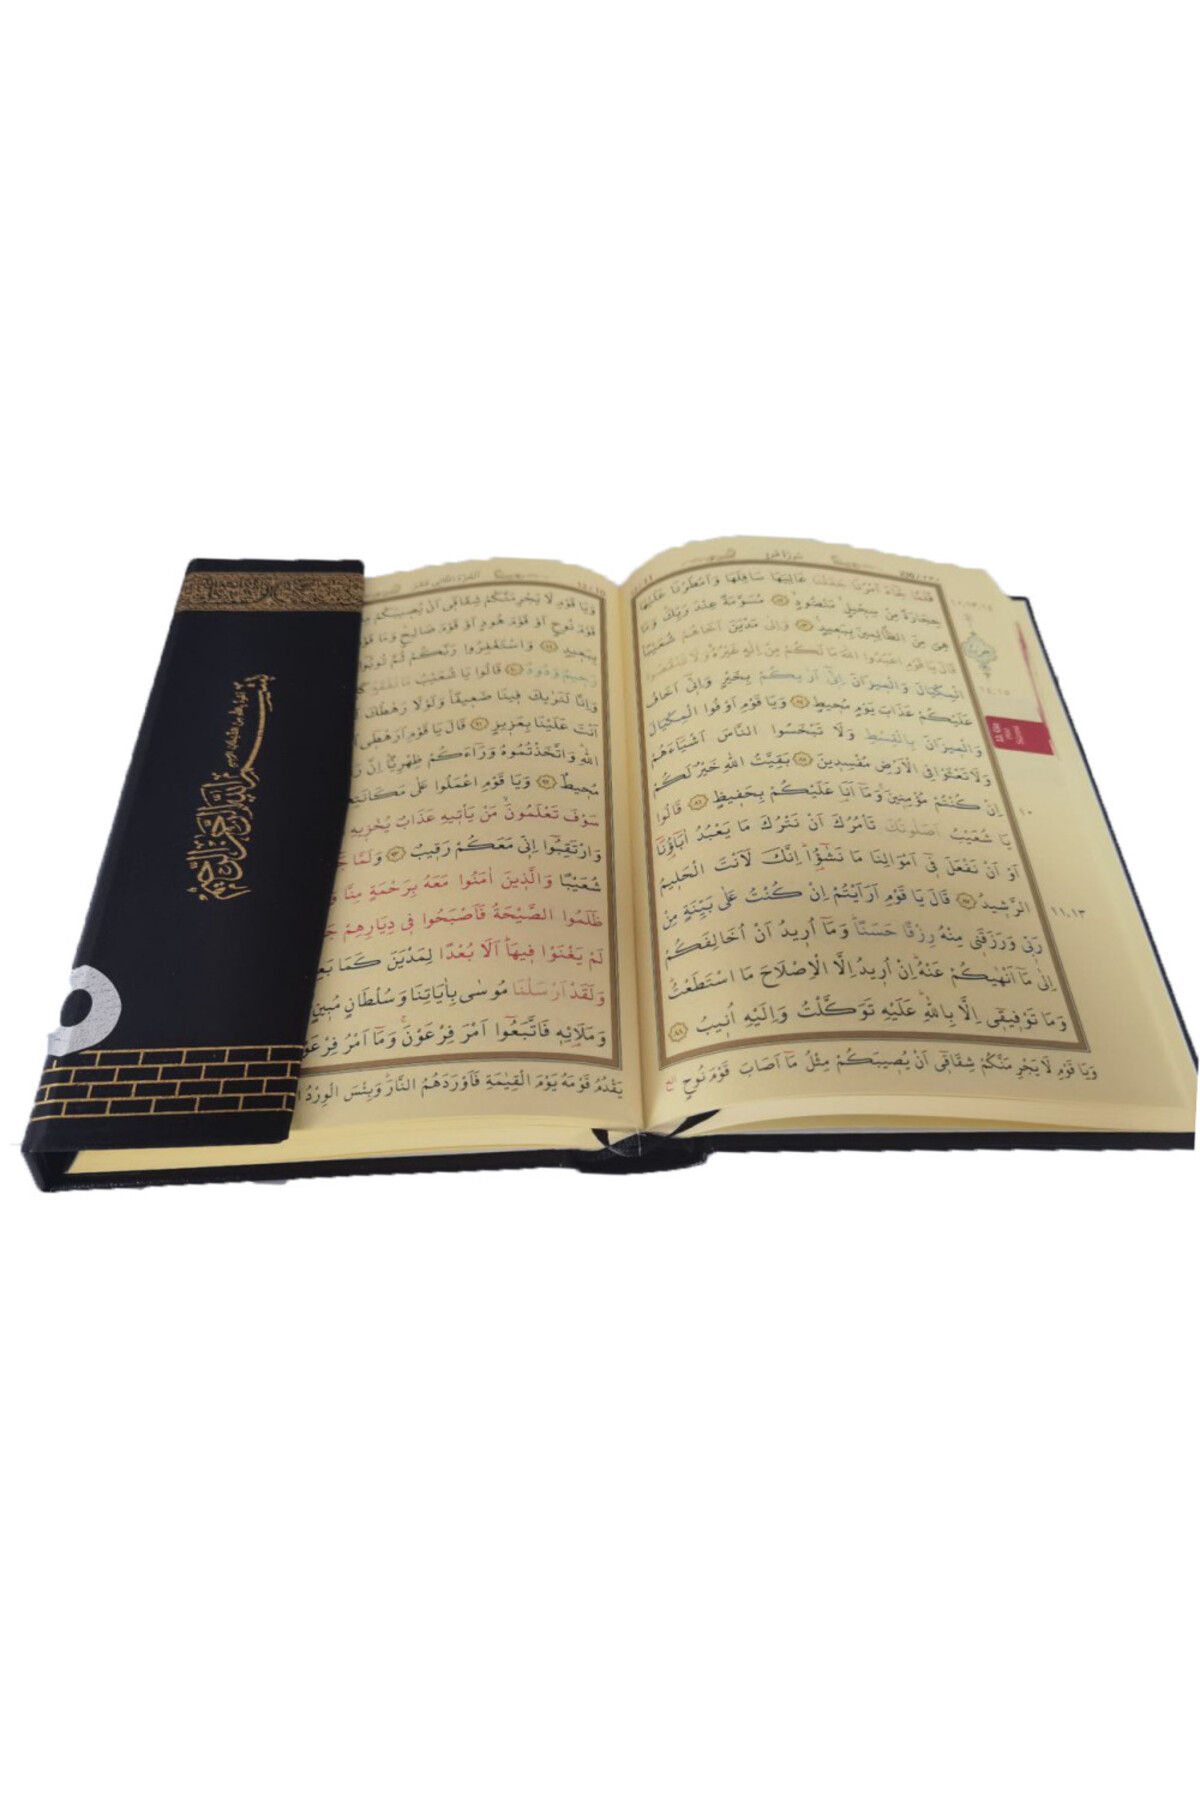 سورة هود
فَلَمَّا جَاءَ اَمْرُنَا جَعَلْنَا عَالِيَهَا سَافِلَهَا وَاَمْطَرْنَا عَلَيْهَا
حِجَارَةً مِنْ سِجِّيلٍ مَنْضُودٍ ﴿٨٢﴾ مُسَوَّمَةً عِنْدَ رَبِّكَ وَمَا
هِيَ مِنَ الظَّالِمِينَ بِبَعِيدٍ ﴿٨٣﴾ وَاِلٰى مَدْيَنَ اَخَاهُمْ شُعَيْبًا
قَالَ يَا قَوْمِ اعْبُدُوا اللّٰهَ مَا لَكُمْ مِنْ اِلٰهٍ غَيْرُهُ وَلَا تَنْقُصُوا
الْمِكْيَالَ وَالْمِيزَانَ اِنّٓى اَرٰيكُمْ بِخَيْرٍ وَاِنّٓى اَخَافُ
عَلَيْكُمْ عَذَابَ يَوْمٍ مُحِيطٍ ﴿٨٤﴾ وَيَا قَوْمِ اَوْفُوا الْمِكْيَالَ
وَالْمِيزَانَ بِالْقِسْطِ وَلَا تَبْخَسُوا النَّاسَ اَشْيَاءَهُمْ
وَلَا تَعْثَوْا فِى الْاَرْضِ مُفْسِدِينَ ﴿٨٥﴾ بَقِيَّتُ اللّٰهِ خَيْرٌ لَكُمْ
اِنْ كُنْتُمْ مُؤْمِنِينَ وَمَٓا اَنَا عَلَيْكُمْ بِحَفِيظٍ ﴿٨٦﴾ قَالُوا
يَا شُعَيْبُ اَصَلٰوتُكَ تَأْمُرُكَ اَنْ نَتْرُكَ مَا يَعْبُدُ اٰبَٓاؤُنَٓا
اَوْ اَنْ نَفْعَلَ فٓى اَمْوَالِنَا مَا نَشٰٓؤُا اِنَّكَ لَاَنْتَ الْحَلِيمُ
الرَّشِيدُ ﴿٨٧﴾ قَالَ يَا قَوْمِ اَرَاَيْتُمْ اِنْ كُنْتُ عَلٰى بَيِّنَةٍ مِنْ
رَبّى وَرَزَقَنى مِنْهُ رِزْقًا حَسَنًا وَمَٓا اُرِيدُ اَنْ اُخَالِفَكُمْ
اِلٰى مَٓا اَنْهٰيكُمْ عَنْهُ اِنْ اُرِيدُ اِلَّا الْاِصْلَاحَ مَا اسْتَطَعْتُ
وَمَا تَوْفِيقٓى اِلَّا بِاللّٰهِ عَلَيْهِ تَوَكَّلْتُ وَاِلَيْهِ اُنِيبُ ﴿٨٨﴾
وَيَا قَوْمِ لَا يَجْرِمَنَّكُمْ شِقَاقٓى اَنْ يُصِيبَكُمْ مِثْلُ مَٓا اَصَابَ قَوْمَ نُوحٍ
وَيَا قَوْمِ لَا يَجْرِمَنَّكُمْ شِقَاقٓى اَنْ يُصِيبَكُمْ
قَوْمَ نُوحٍ اَوْ قَوْمَ هُودٍ اَوْ قَوْمَ صَالِحٍ وَمَا
بِبَعِيدٍ ﴿٨٩﴾ وَاسْتَغْفِرُوا رَبَّكُمْ ثُمَّ تُوبُوا
رَحِيمٌ وَدُودٌ ﴿٩٠﴾ قَالُوا يَا شُعَيْبُ مَا نَفْقَهُ
وَاِنَّا لَنَرٰيكَ فِينَا ضَعِيفًا وَلَوْلَا رَهْطُكَ
اَنْتَ عَلَيْنَا بِعَزِيزٍ ﴿٩١﴾ قَالَ يَا قَوْمِ اَرَهْطٓى
اللّٰهِ وَاتَّخَذْتُمُوهُ وَرَٓاءَكُمْ ظِهْرِيًّا اِنَّ
مُحِيطٌ ﴿٩٢﴾ وَيَا قَوْمِ اعْمَلُوا عَلٰى مَكَانَتِ
سَوْفَ تَعْلَمُونَ مَنْ يَأْتِيهِ عَذَابٌ يُخْزِيهِ
وَارْتَقِبُٓوا اِنّى مَعَكُمْ رَقِيبٌ ﴿٩٣﴾ وَلَمَّا
شُعَيْبًا وَالَّذِينَ اٰمَنُوا مَعَهُ بِرَحْمَةٍ مِنَّا
ظَلَمُوا الصَّيْحَةُ فَاَصْبَحُوا فى دِيَارِهِمْ
لَمْ يَغْنَوْا فِيهَا اَلَا بُعْدًا لِمَدْيَنَ كَمَا
وَلَقَدْ اَرْسَلْنَا مُوسٰى بِاٰيَاتِنَا وَسُلْطَانٍ مُبِينٍ
وَمَلَائِهِ فَاتَّبَعُٓوا اَمْرَ فِرْعَوْنَ وَمَٓا اَمْرُ فِرْعَوْ
يَقْدُمُ قَوْمَهُ يَوْمَ الْقِيٰمَةِ فَاَوْرَدَهُمُ النَّارَ وَبِئْسَ الْوِرْدُ
بسم الله الرحمن الرحيم